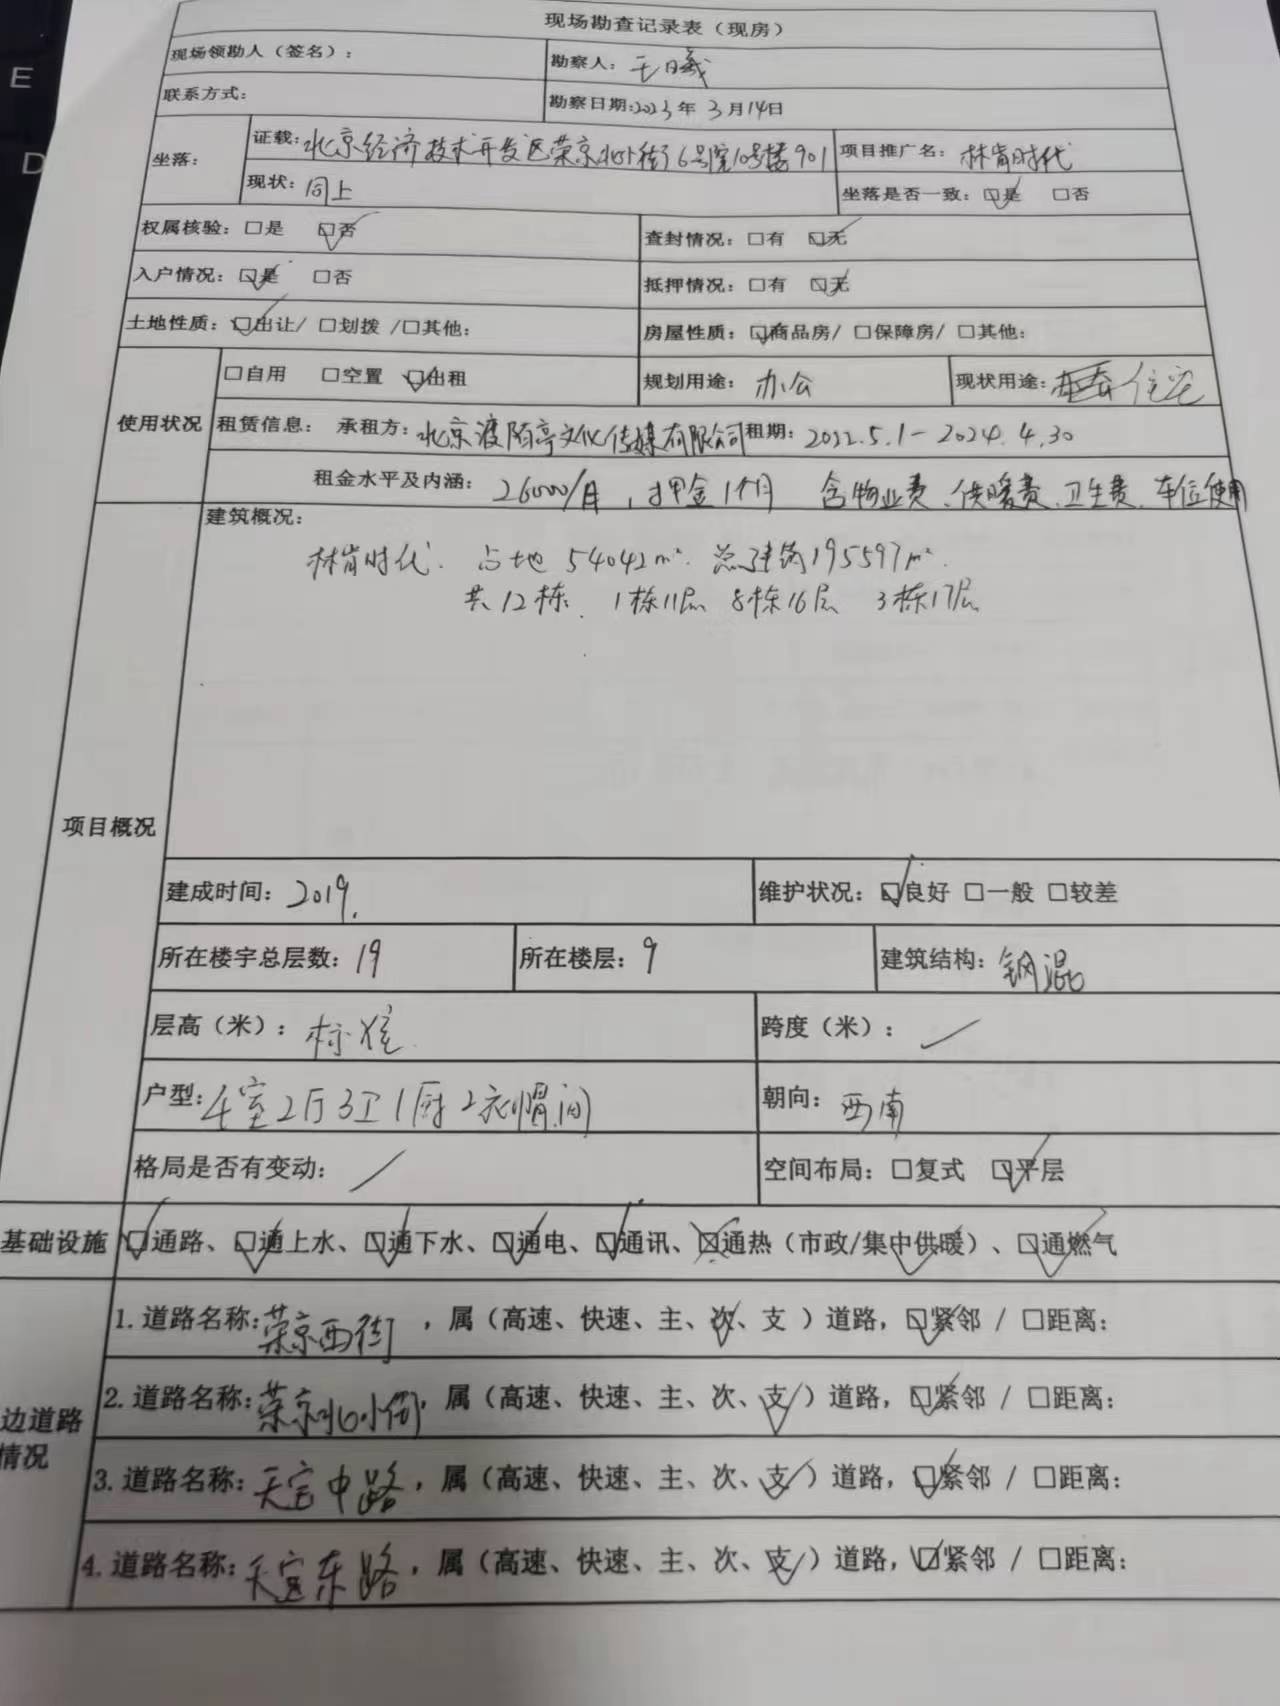 E
D
现场勘查记录表（现房）
现场领勘人（签名）： 勘察人：王曦
联系方式： 勘察日期：2023年 3月14日
坐落： 证载：北京经济技术开发区荣京北小街6号院10号楼901 项目推广名：林肯时代
现状：同上 坐落是否一致：☑是 □否
权属核验：□是 ☑否 查封情况：□有 ☑无
入户情况：☑是 □否 抵押情况：□有 ☑无
土地性质：☑出让/ □划拨 /□其他： 房屋性质：☑商品房/ □保障房/ □其他：
使用状况 □自用 □空置 ☑出租 规划用途：办公 现状用途：住宅
租赁信息： 承租方：北京渡陌亭文化传媒有限公司 租期：2022.5.1-2024.4.30
租金水平及内涵：26000/月，押金1个月 含物业费、供暖费、卫生费、车位使用
项目概况 建筑概况：
林肯时代. 占地 54042m². 总建筑195597m².
共12栋. 1栋11层 8栋16层 3栋17层
建成时间：2019. 维护状况：☑良好 □一般 □较差
所在楼宇总层数：19 所在楼层：9 建筑结构：钢混
层高（米）：标准 跨度（米）：/
户型：4室2厅3卫1厨2衣帽间 朝向：西南
格局是否有变动：/ 空间布局：□复式 ☑平层
基础设施 ☑通路、☑通上水、☑通下水、☑通电、☑通讯、☒通热（市政/集中供暖）、☑通燃气
边道路情况 1.道路名称：荣京西街，属（高速、快速、主、次、支 ）道路，☑紧邻 / □距离：
2.道路名称：荣京北小街，属（高速、快速、主、次、支 ）道路，☑紧邻 / □距离：
3.道路名称：天宝中路，属（高速、快速、主、次、支 ）道路，☑紧邻 / □距离：
4.道路名称：天宝东路，属（高速、快速、主、次、支 ）道路，☑紧邻 / □距离：